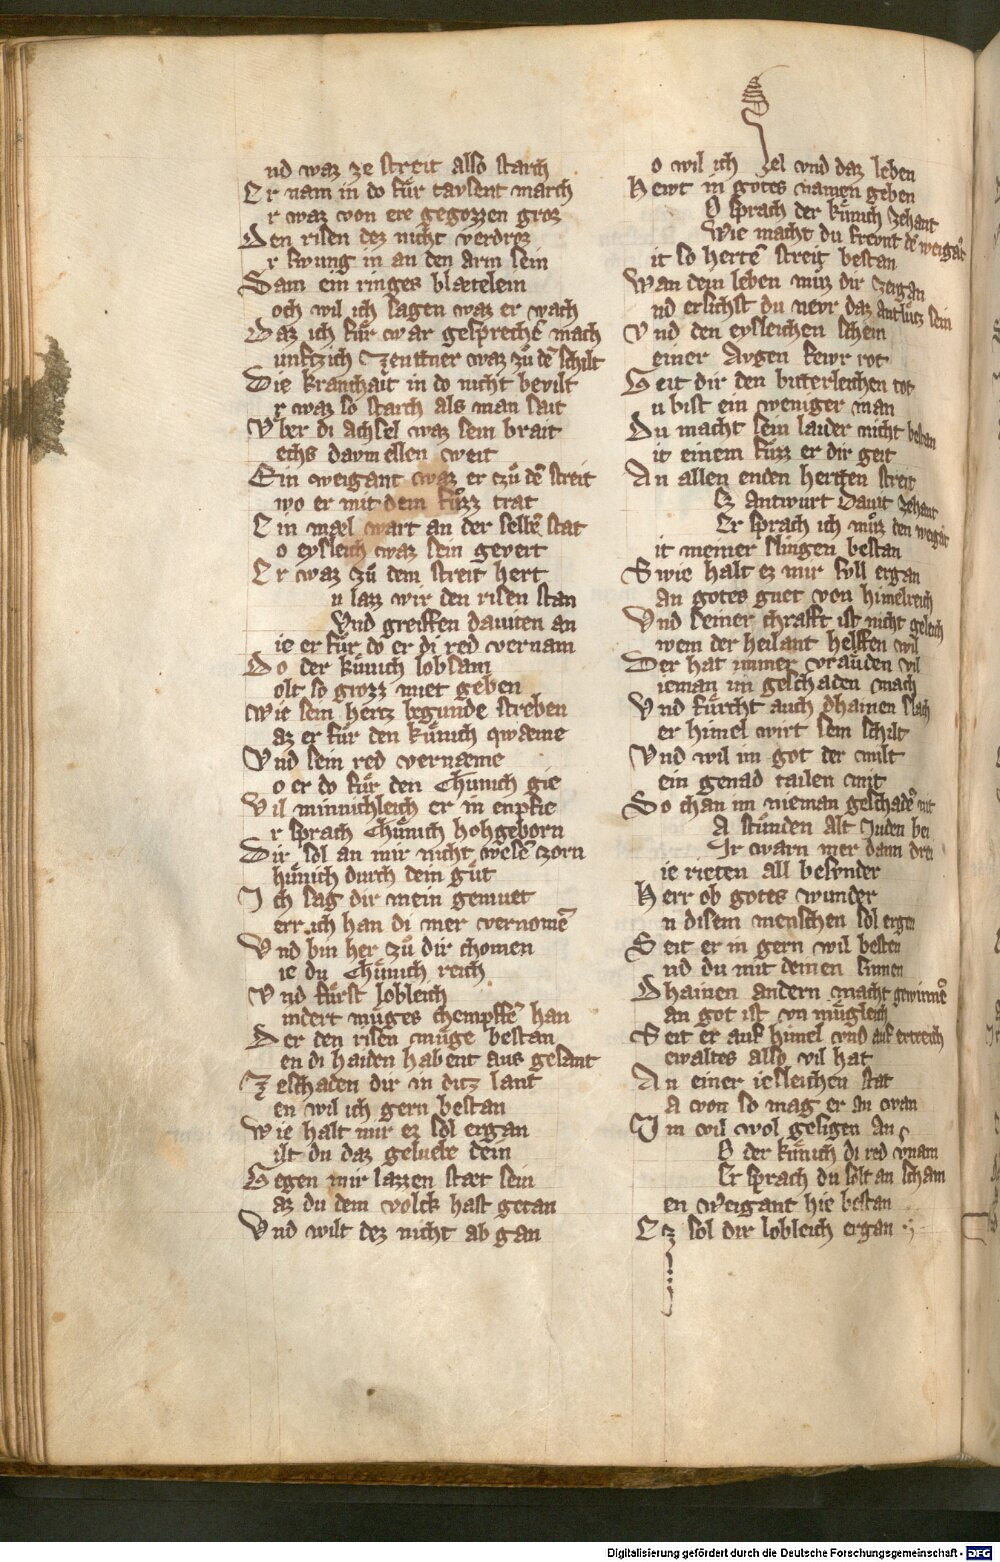 nd waz ze streit also starch
Er nam in do für tavsent march
r waz von ere gegozzen groz
Den risen dez nicht verdroz
r swung in an den arm sein
Sam ein ringes blætelein
och wil ich sagen waz er wach
Daz ich für war gesprechē mach
unftzich Zenttner waz zů dē schilt
Die kranchait in do nicht bevilt
r waz so starch als man sait
Vber di achsel waz sein brait
echs davmellen weit
Ein weigant waz er czů dē streit
wo er mit dem fůzz trat
Ein mæl wart an der selbē stat
o eysleich waz sein gevert
Er waz zů dem streit hert
u lazz wir den risen stan
Vnd greiffen daviten an
ie er für do er di red vernam
Do der künich lobsam
olt so grozz miet geben
Wie sein hertz begunde streben
az er für den künich qwæme
Vnd sein red vernæme
o er do für den Chünich gie
Vil minnichleich er in enpfie
r sprach Chünich hohgeborn
Dir sol an mir nicht wesē czorn
hünich durch dein güt
Ich sag dir mein gemuet
err ich han di mer vernomē
Vnd bin her zů dir chomen
ie du Chünich reich
Vnd fürst lobleich
indert müges chempffē han
Der den risen müge bestan
en di haiden habent aus gesant
Zeschaden dir in ditz lant
en wil ich gern bestan
Wie halt mir ez sol ergan
ilt du daz geluebe dein
Gegen mir lazzen stæt sein
az du dem volck hast getan
Vnd wilt dez nicht ab gan
o wil ich sel vnd daz leben
Hewt in gotes namen geben
O sprach der künich zehant
Wie macht du frevnt dē weigāt
it so hertē streit bestan
Wan dem leben můz dir zergan
nd ersichst du nevr daz antlütz sein
Vnd den eysleichen schein
einer Avgen fewr rot
Geit dir den bitterleichen tot
u bist ein weniger man
Du macht sein laider nicht bestan
it einem fůzz er dir geit
An allen enden hertten streit
Ez antwurt Davit zehant
Er sprach ich můz den weigāt
it meiner slingen bestan
Swie halt ez mir sull ergan
an gotes guet von himelreich
Vnd seiner chrafft ist nicht geleich
wem der heilant helffen wil
Der hat immer vräuden vil
ieman im geschaden mach
Vnd fürcht auch dhainen slach
er himel wirt sein schilt
Vnd wil im got der milt
ein genad tailen mit
So chan im nieman geschadē nit
A stůnden alt Juden bei
Ir warn mer dann drei
ie rieten all besunder
Herr ob gotes wunder
n disem menschen sol ergen
Seit er in gern wil besten
nd du mit deinen sinnen
Dhainen andern macht gewinnē
an got ist vn müglich
Seit er auf himel vnd auf ertreich
ewaltes also vil hat
An einer iesleichen stat
A von so mag er an wan
Im wil wol gesigen an
O der künich di red vnam
Er sprach du solt an scham
en weigant hie bestan
Ez sol dir lobleich ergan
Digitalisierung gefördert durch die Deutsche Forschungsgemeinschaft - DFG